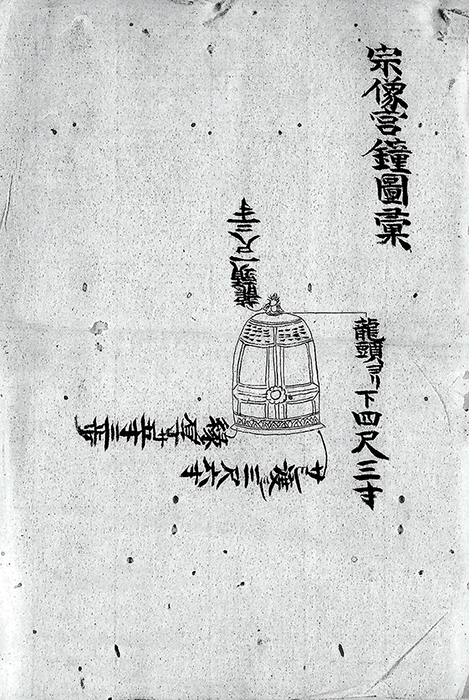 宗像宮鐘圖彙
龍頭ヨリ下四尺三寸
龍頭一尺二寸
サシ渡シ二尺六寸
縁厚サ